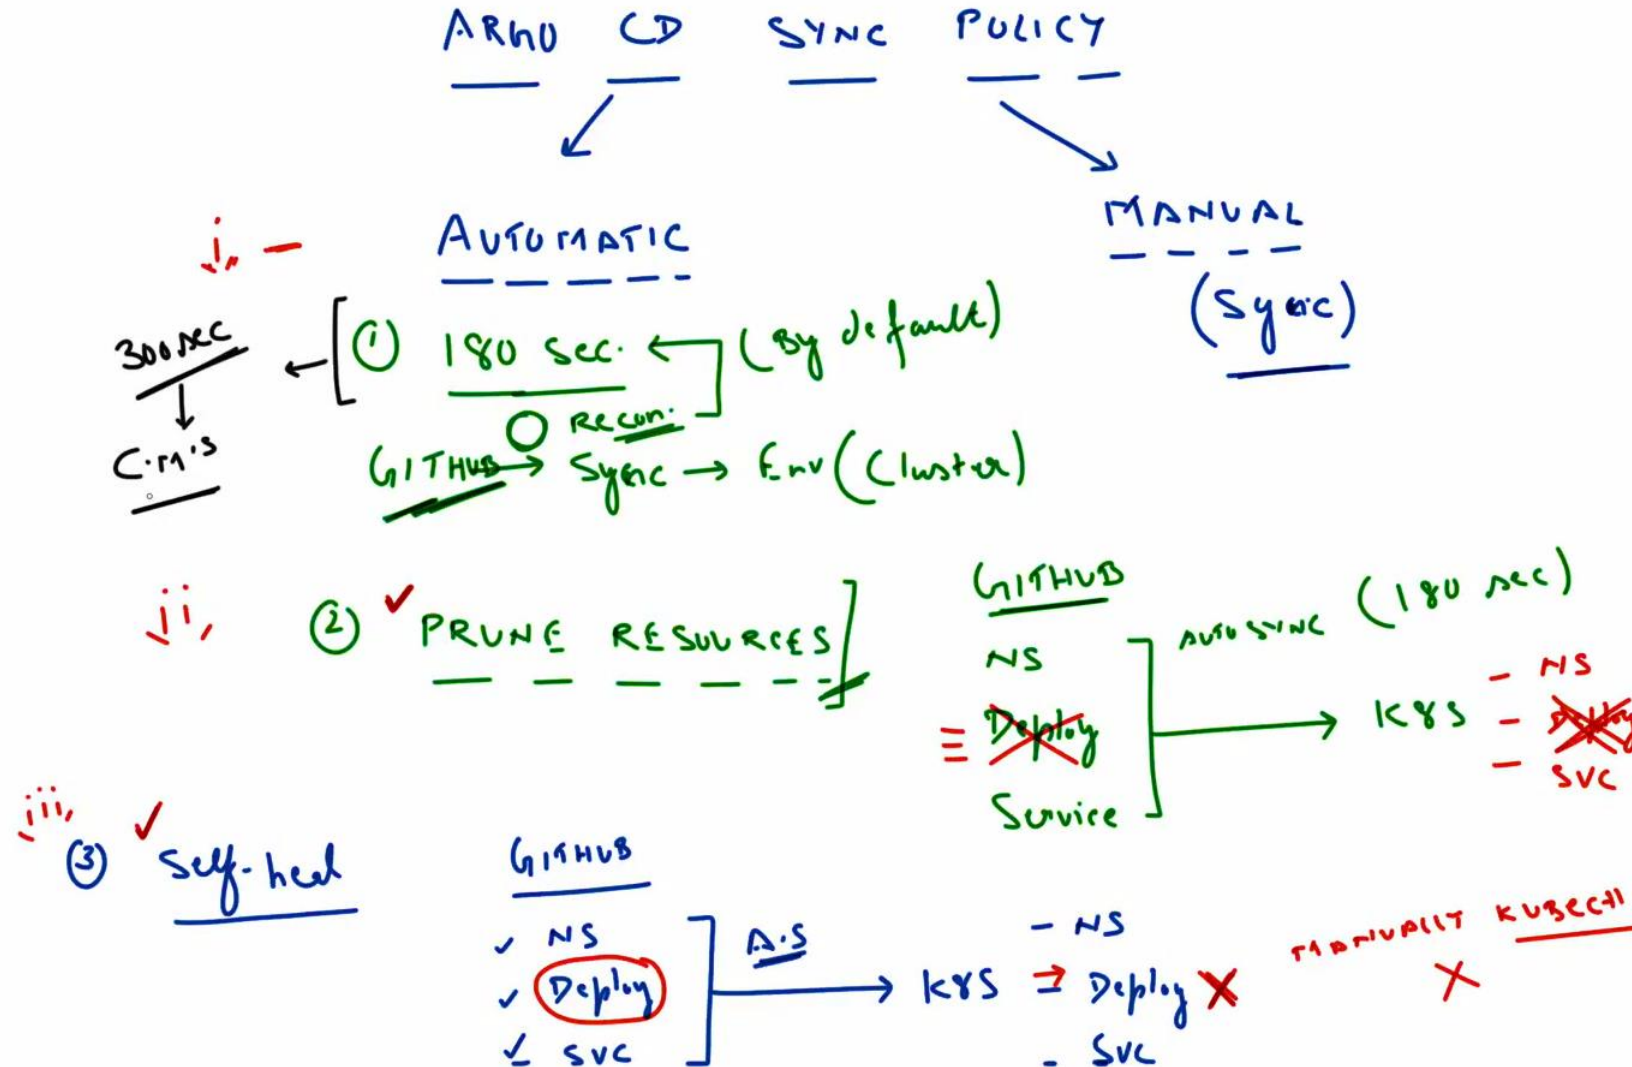 ARGO CD SYNC POLICY
AUTOMATIC
MANUAL
(Sync)
i,
① 180 sec. (By default)
300 sec
Recon.
C.M's
GITHUB → Sync → Env (Cluster)
ii,
② ✓ PRUNE RESOURCES
GITHUB
NS
Deploy
Service
AUTO SYNC (180 sec)
K8S
- NS
- Deploy
- SVC
iii,
③ ✓ Self-heal
GITHUB
✓ NS
✓ Deploy
✓ SVC
A.S
K8S
- NS
- Deploy X
- SVC
MANUALLY KUBECTL
X